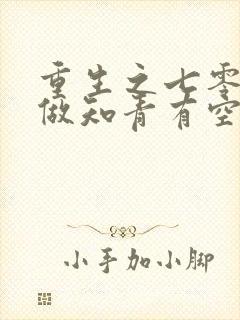 重生之七零
做知青有空
小手加小脚